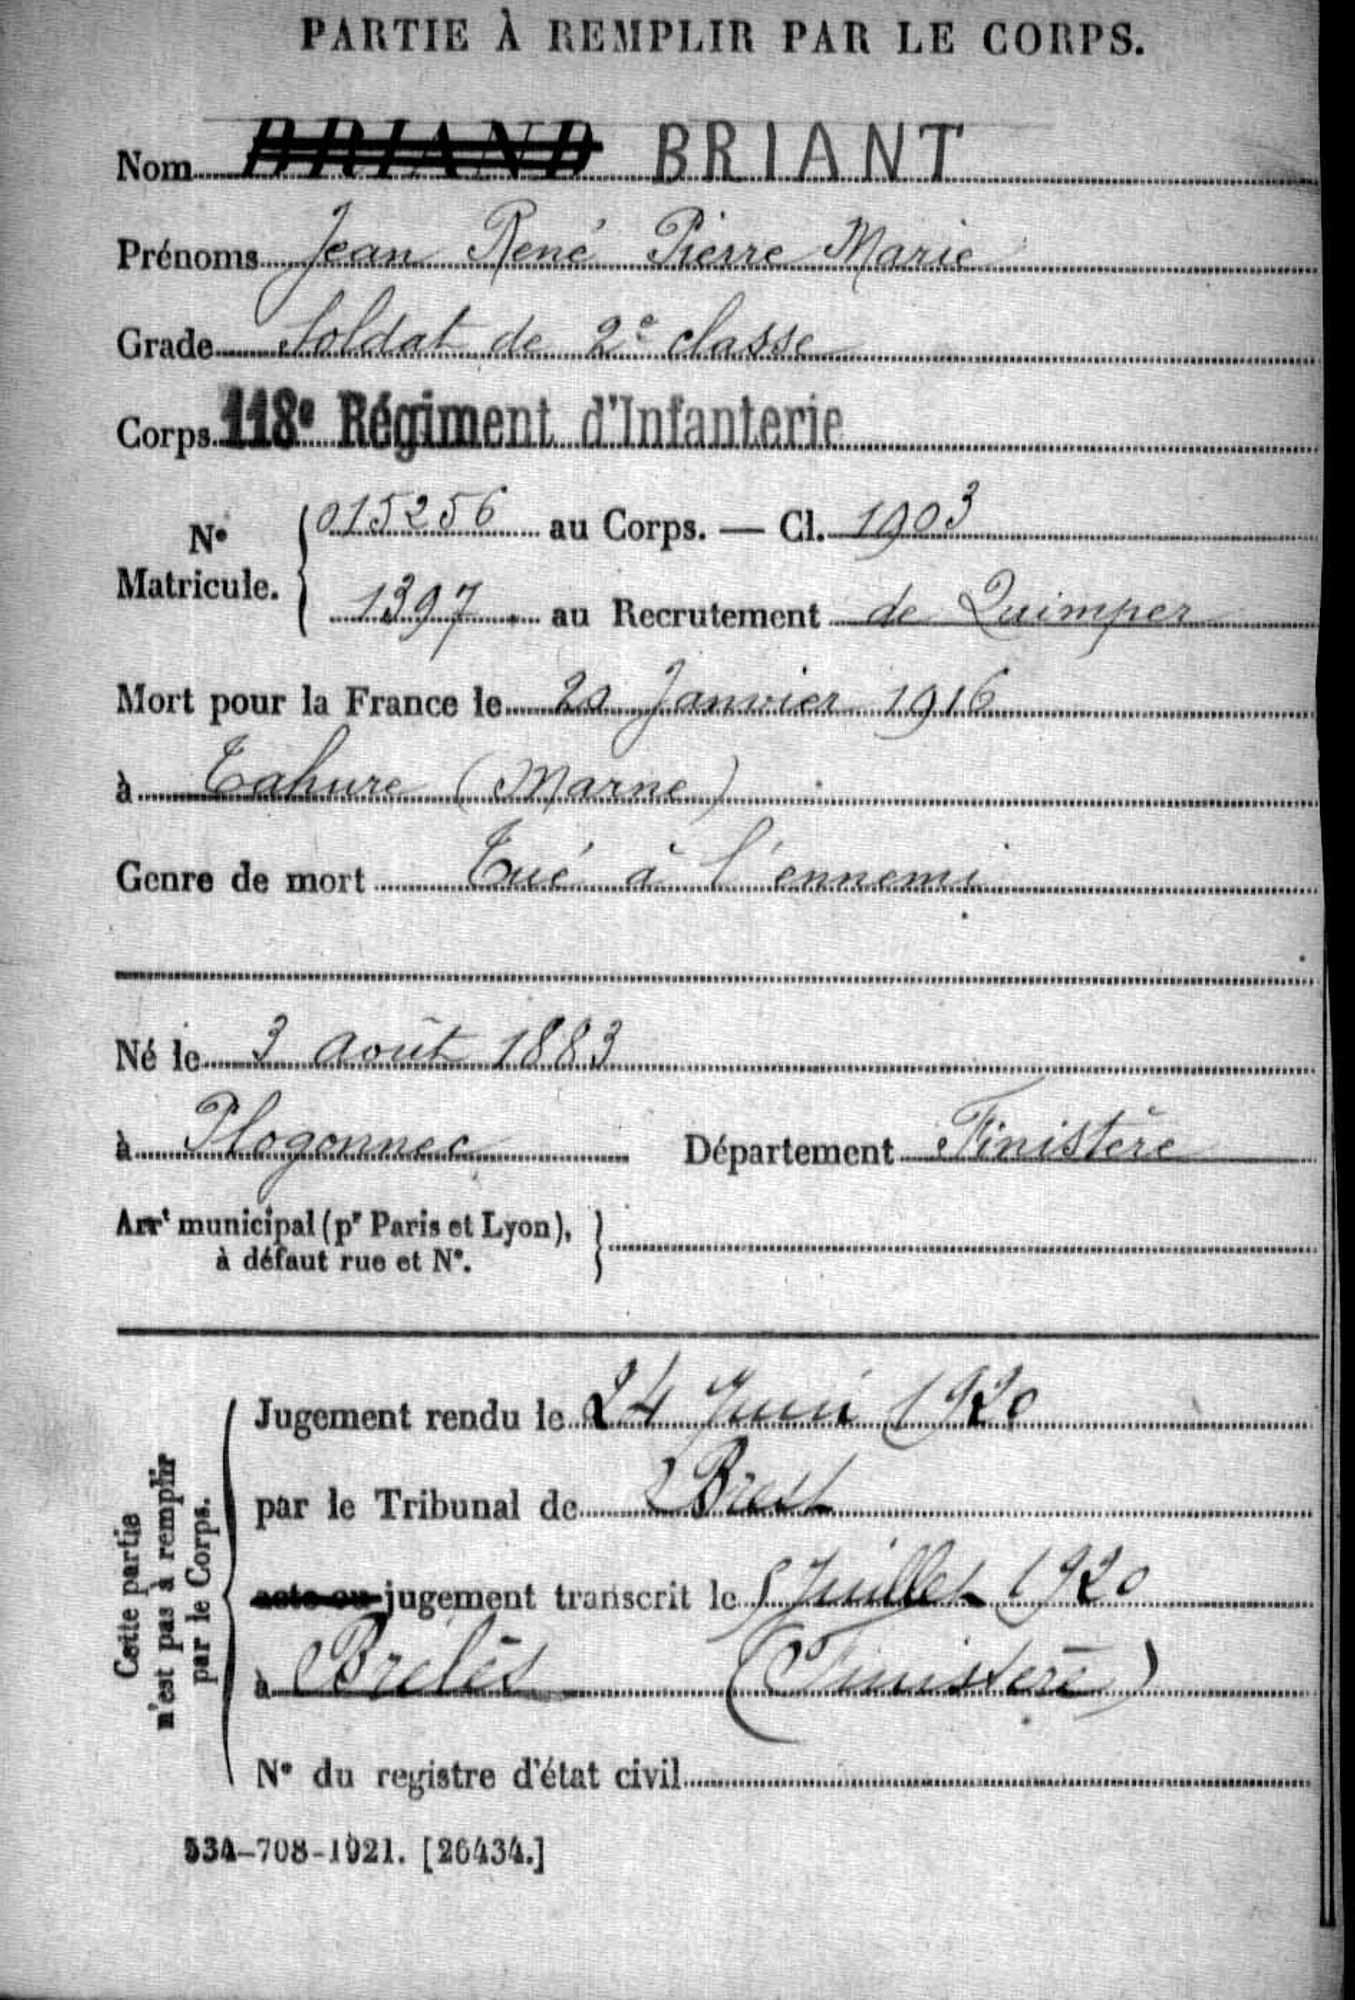 PARTIE À REMPLIR PAR LE CORPS.
Nom BRIAND BRIANT
Prénoms Jean René Pierre Marie
Grade Soldat de 2e classe
Corps 118e Régiment d'Infanterie
No Matricule. { 015256 au Corps. — Cl. 1903
1397 au Recrutement de Quimper
Mort pour la France le 20 Janvier 1916
à Tahure (Marne)
Genre de mort Tué à l'ennemi
Né le 3 août 1883
à Plogonnec Département Finistère
Arrt municipal (pr Paris et Lyon), }
à défaut rue et No.
Cette partie
n'est pas à remplir
par le Corps.
Jugement rendu le 24 Juin 1920
par le Tribunal de Brest
acte ou jugement transcrit le 5 Juillet 1920
à Brélès (Finistère)
No du registre d'état civil
534-708-1921. [26434.]